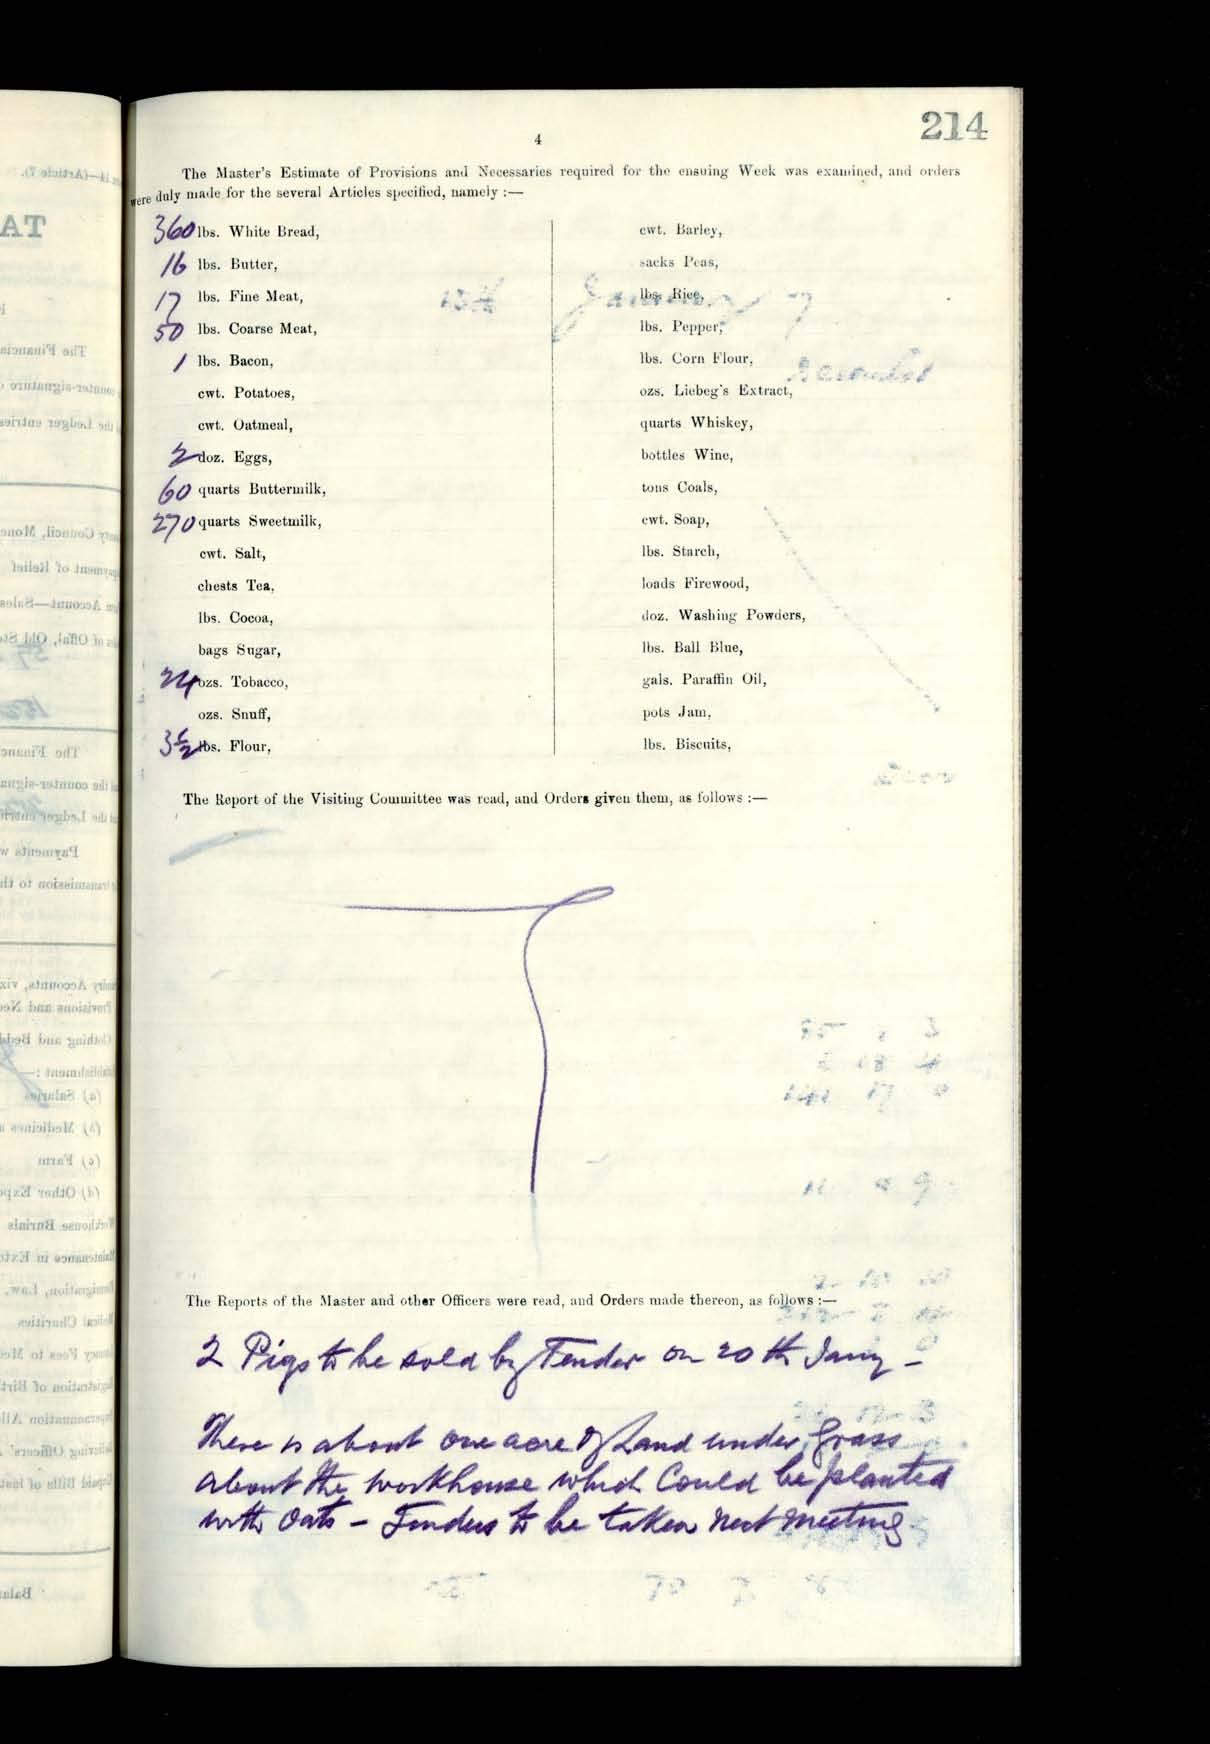 214
4
The Master's Estimate of Provisions and Necessaries required for the ensuing Week was examined, and orders
were duly made for the several Articles specified, namely :—
360 lbs. White Bread,
16 lbs. Butter,
17 lbs. Fine Meat,
50 lbs. Coarse Meat,
1 lbs. Bacon,
cwt. Potatoes,
cwt. Oatmeal,
2 doz. Eggs,
60 quarts Buttermilk,
270 quarts Sweetmilk,
cwt. Salt,
chests Tea,
lbs. Cocoa,
bags Sugar,
24 ozs. Tobacco,
ozs. Snuff,
3½ lbs. Flour,
cwt. Barley,
sacks Peas,
lbs. Rice,
lbs. Pepper,
lbs. Corn Flour,
ozs. Liebeg's Extract,
quarts Whiskey,
bottles Wine,
tons Coals,
cwt. Soap,
lbs. Starch,
loads Firewood,
doz. Washing Powders,
lbs. Ball Blue,
gals. Paraffin Oil,
pots Jam,
lbs. Biscuits,
The Report of the Visiting Committee was read, and Orders given them, as follows :—
The Reports of the Master and other Officers were read, and Orders made thereon, as follows :—
2 Pigs to be sold by Tender on 20th Jany –
There is about one acre of Land under grass
about the workhouse which Could be planted
with Oats – Tenders to be taken next meeting.